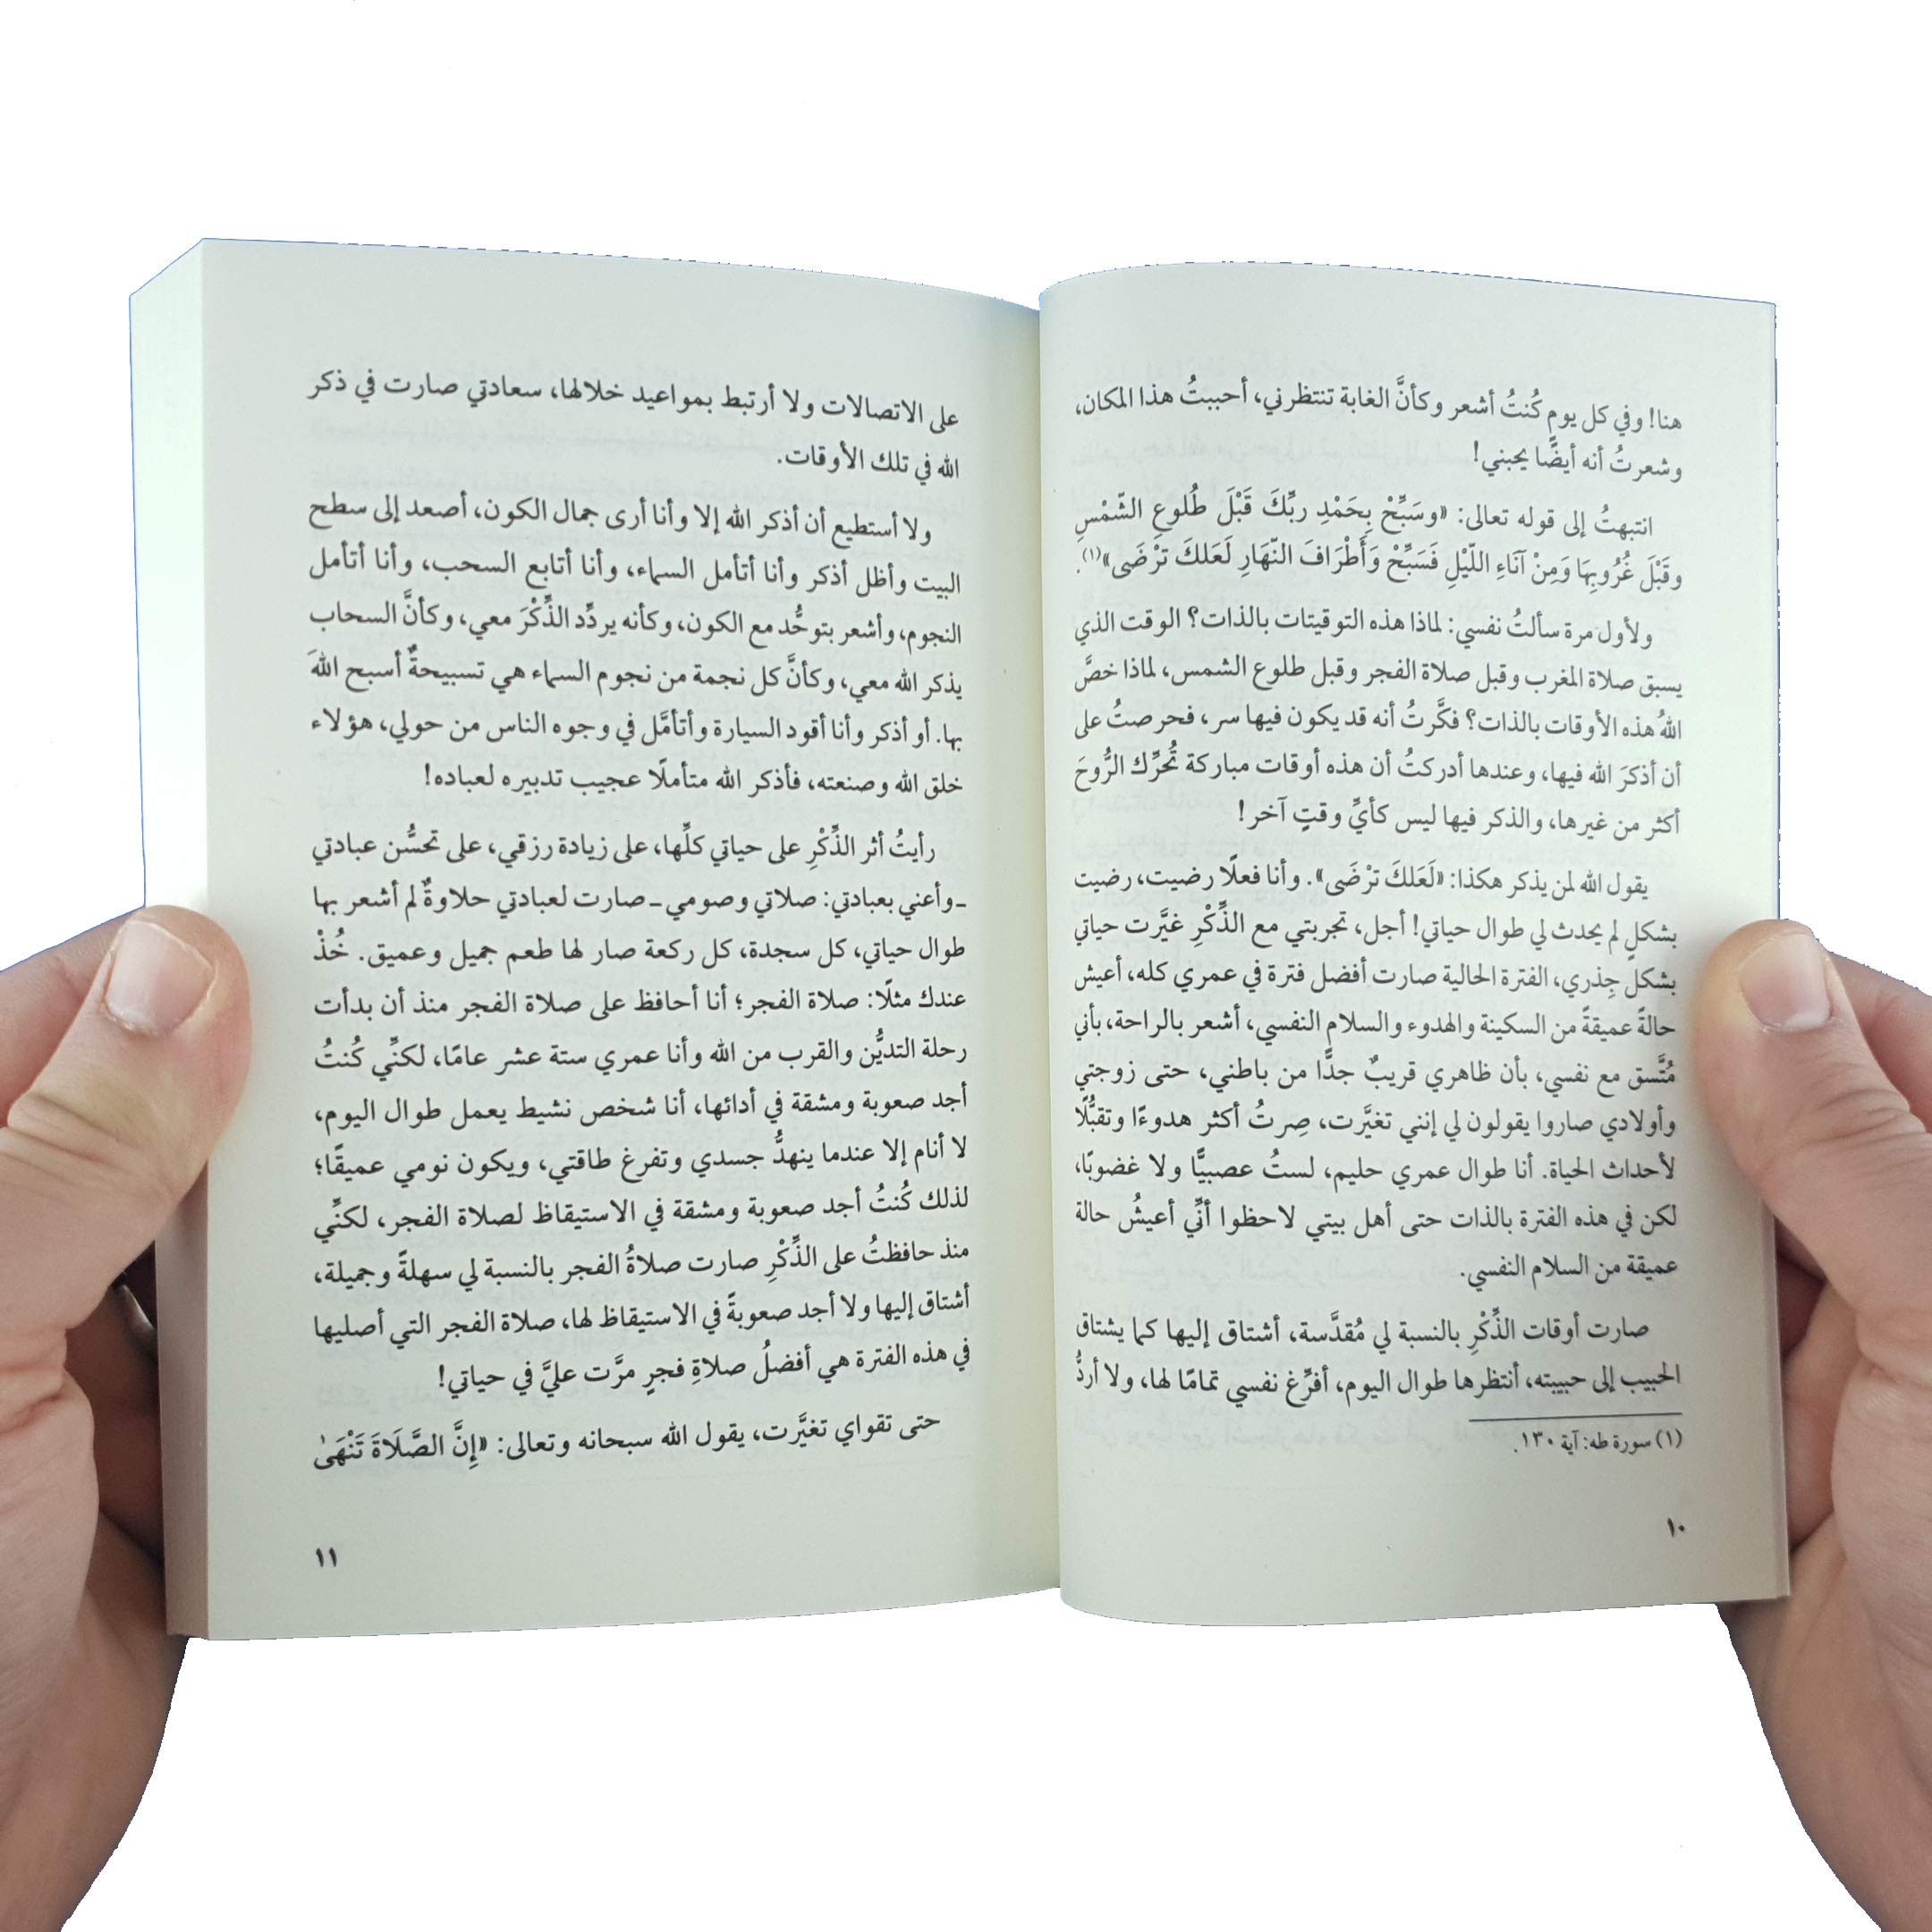 هنا! وفي كل يومٍ كُنتُ أشعر وكأنَّ الغابة تنتظرني، أحببتُ هذا المكان،
وشعرتُ أنه أيضًا يحبني!
انتبهتُ إلى قوله تعالى: «وسَبِّحْ بِحَمْدِ ربِّكَ قَبْلَ طُلوعِ الشّمْسِ
وقَبْلَ غُرُوبِهَا وَمِنْ آنَاءِ اللّيْلِ فَسَبِّحْ وَأَطْرَافَ النّهَارِ لَعَلكَ ترْضَى»(١).
ولأول مرة سألتُ نفسي: لماذا هذه التوقيتات بالذات؟ الوقت الذي
يسبق صلاة المغرب وقبل صلاة الفجر وقبل طلوع الشمس، لماذا خصَّ
اللهُ هذه الأوقات بالذات؟ فكَّرتُ أنه قد يكون فيها سر، فحرصتُ على
أن أذكرَ الله فيها، وعندها أدركتُ أن هذه أوقات مباركة تُحرِّك الرُّوحَ
أكثر من غيرها، والذكر فيها ليس كأيِّ وقتٍ آخر!
يقول الله لمن يذكر هكذا: «لَعَلكَ ترْضَى». وأنا فعلًا رضيت، رضيت
بشكلٍ لم يحدث لي طوال حياتي! أجل، تجربتي مع الذِّكْرِ غيَّرت حياتي
بشكل جِذري، الفترة الحالية صارت أفضل فترة في عمري كله، أعيش
حالةً عميقةً من السكينة والهدوء والسلام النفسي، أشعر بالراحة، بأني
مُتَّسق مع نفسي، بأن ظاهري قريبٌ جدًّا من باطني، حتى زوجتي
وأولادي صاروا يقولون لي إنني تغيَّرت، صِرتُ أكثر هدوءًا وتقبُّلًا
لأحداث الحياة. أنا طوال عمري حليم، لستُ عصبيًّا ولا غضوبًا،
لكن في هذه الفترة بالذات حتى أهل بيتي لاحظوا أنِّي أعيشُ حالة
عميقة من السلام النفسي.
صارت أوقات الذِّكْرِ بالنسبة لي مُقدَّسة، أشتاق إليها كما يشتاق
الحبيب إلى حبيبته، أنتظرها طوال اليوم، أفرِّغ نفسي تمامًا لها، ولا أردُّ
(١) سورة طه: آية ١٣٠.
١٠
على الاتصالات ولا أرتبط بمواعيد خلالها، سعادتي صارت في ذكر
الله في تلك الأوقات.
ولا أستطيع أن أذكر الله إلا وأنا أرى جمال الكون، أصعد إلى سطح
البيت وأظل أذكر وأنا أتأمل السماء، وأنا أتابع السحب، وأنا أتأمل
النجوم، وأشعر بتوحُّد مع الكون، وكأنه يردِّد الذِّكْرَ معي، وكأنَّ السحاب
يذكر الله معي، وكأنَّ كل نجمة من نجوم السماء هي تسبيحةٌ أسبح اللهَ
بها. أو أذكر وأنا أقود السيارة وأتأمَّل في وجوه الناس من حولي، هؤلاء
خلق الله وصنعته، فأذكر الله متأملًا عجيب تدبيره لعباده!
رأيتُ أثر الذِّكْرِ على حياتي كلِّها، على زيادة رزقي، على تحسُّن عبادتي
ـ وأعني بعبادتي: صلاتي وصومي ـ صارت لعبادتي حلاوةٌ لم أشعر بها
طوال حياتي، كل سجدة، كل ركعة صار لها طعم جميل وعميق. خُذْ
عندك مثلًا: صلاة الفجر؛ أنا أحافظ على صلاة الفجر منذ أن بدأت
رحلة التديُّن والقرب من الله وأنا عمري ستة عشر عامًا، لكنِّي كُنتُ
أجد صعوبة ومشقة في أدائها، أنا شخص نشيط يعمل طوال اليوم،
لا أنام إلا عندما ينهدُّ جسدي وتفرغ طاقتي، ويكون نومي عميقًا؛
لذلك كُنتُ أجد صعوبة ومشقة في الاستيقاظ لصلاة الفجر، لكنِّي
منذ حافظتُ على الذِّكْرِ صارت صلاةُ الفجر بالنسبة لي سهلةً وجميلة،
أشتاق إليها ولا أجد صعوبةً في الاستيقاظ لها، صلاة الفجر التي أصليها
في هذه الفترة هي أفضلُ صلاةِ فجرٍ مرَّت عليَّ في حياتي!
حتى تقواي تغيَّرت، يقول الله سبحانه وتعالى: «إِنَّ الصَّلَاةَ تَنْهَىٰ
١١